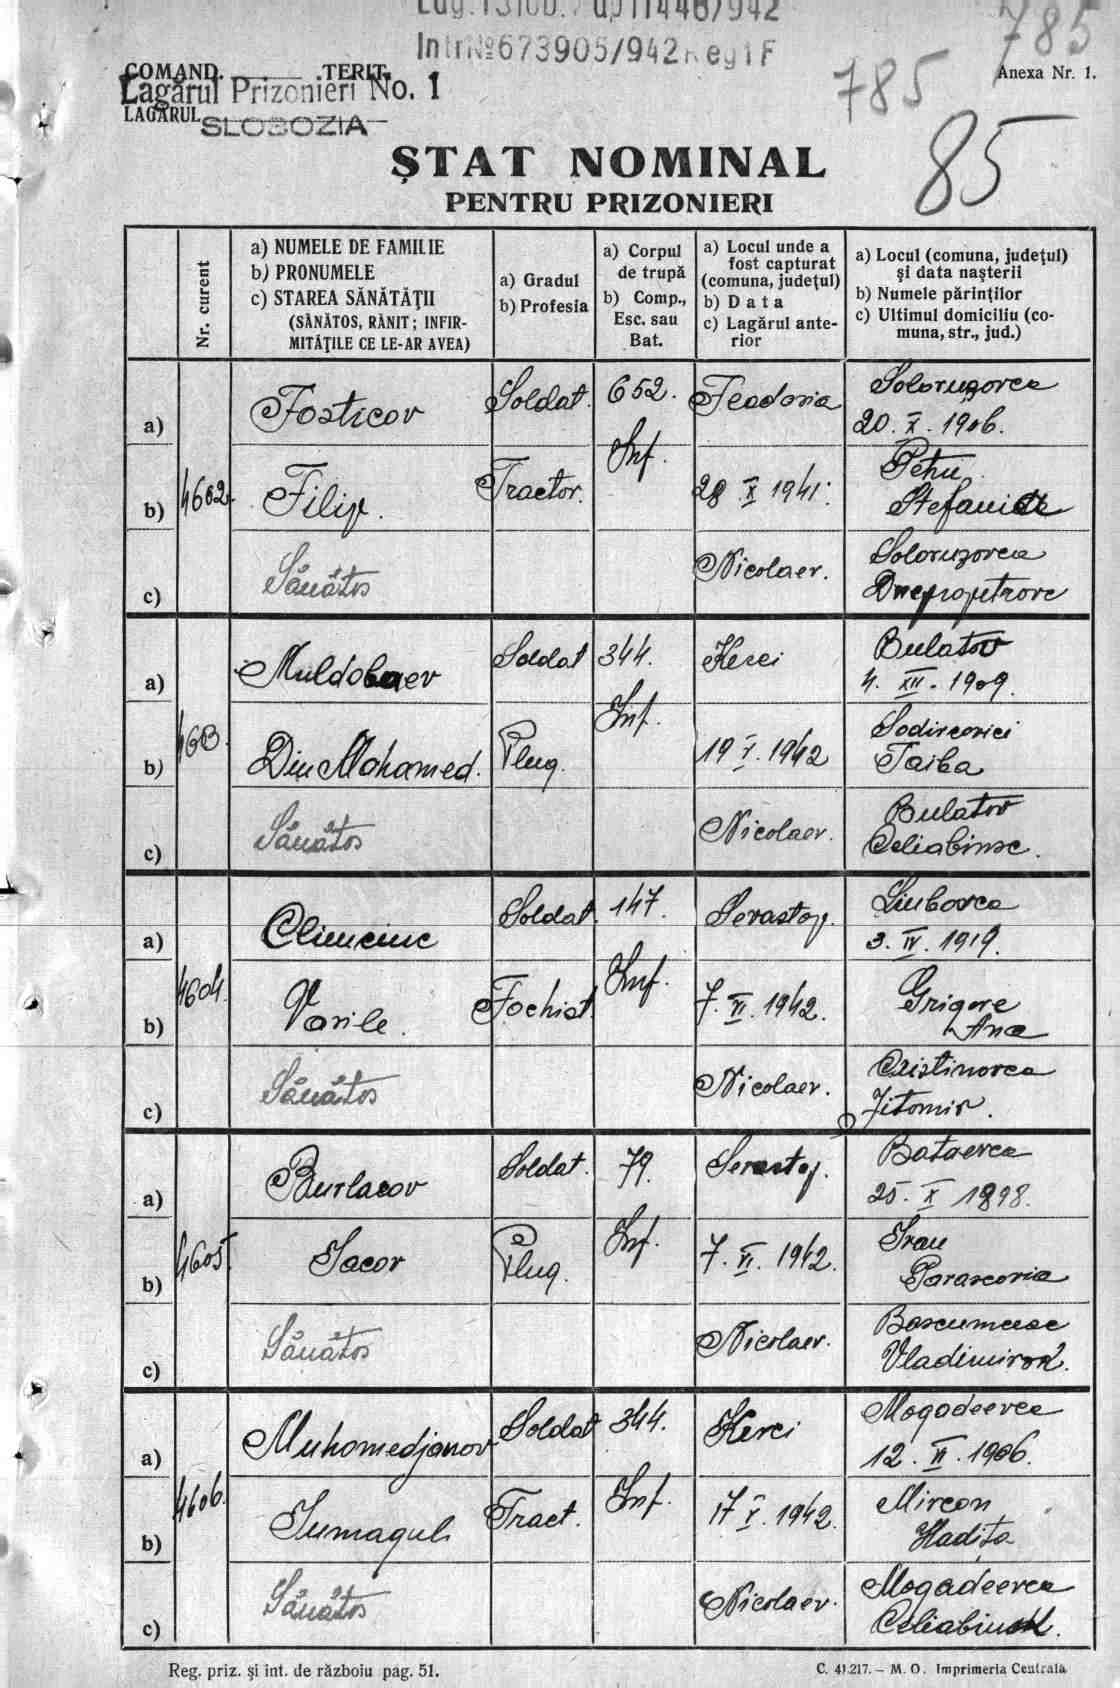 IntrNº673905/942 Reg1F
785
785
85
COMAND. TERIT.
Anexa Nr. 1.
Lagărul Prizonieri No. 1
LAGĂRUL
SLOBOZIA
ȘTAT NOMINAL
PENTRU PRIZONIERI
Nr. curent
a) NUMELE DE FAMILIE
b) PRONUMELE
c) STAREA SĂNĂTĂȚII
(SĂNĂTOS, RĂNIT; INFIR-
MITĂȚILE CE LE-AR AVEA)
a) Gradul
b) Profesia
a) Corpul
de trupă
b) Comp.,
Esc. sau
Bat.
a) Locul unde a
fost capturat
(comuna, județul)
b) Data
c) Lagărul ante-
rior
a) Locul (comuna, județul)
și data nașterii
b) Numele părinților
c) Ultimul domiciliu (co-
muna, str., jud.)
4602.
a)
Fosticov
Soldat.
652.
Inf.
Feodosia
20. X. 1906.
b)
Filip.
Tractor.
28 X 1941.
Petru
c)
Sănătos
Nicolaev.
a)
Muldobaev
Soldat
344.
Inf.
Kerci
Bulatov
4. XII. 1909.
b)
Din Mohamed.
Plug.
19 V. 1942
Taiba
c)
Sănătos
Nicolaev.
Bulatov
Celiabinsc.
4604.
a)
Climciuc
Soldat.
147.
Inf.
Sevastop.
Liubovca
3. IV. 1919.
b)
Vasile.
Fochist.
7. VI. 1942.
Grigore
Ana
c)
Sănătos
Nicolaev.
Cristinovca
Jitomir.
4605.
a)
Burlacov
Soldat.
79.
Inf.
Sevastop.
Bataevca
25. X 1898.
b)
Iacov
Plug.
7. VI. 1942.
Ivan
Parascovia
c)
Sănătos
Nicolaev.
4606.
a)
Muhomedjanov
Soldat
344.
Inf.
Kerci
Mogadeevca
12. VI. 1906.
b)
Iumagul
Tract.
17 V. 1942.
Mircon
Hadița
c)
Sănătos
Nicolaev.
Mogadeevca
Celiabinsk.
Reg. priz. și int. de războiu pag. 51.
C. 41.217. – M. O. Imprimeria Centrala